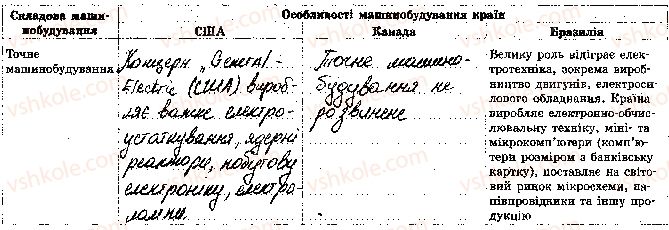 Складова маши-
нобудування
Особливості машинобудування країн
США
Канада
Бразилія
Точне
машинобудування
Концерн „General-
Electric (США) вироб-
ляє важке електро-
устаткування, ядерні
реактори, побутову
електроніку, електро-
лампи.
Точне машино-
будування не
розвинене
Велику роль відіграє елек-
тротехніка, зокрема вироб-
ництво двигунів, електроси-
лового обладнання. Країна
виробляє електронно-обчис-
лювальну техніку, міні- та
мікрокомп'ютери (комп'ю-
тери розміром з банківську
картку), поставляє на світо-
вий ринок мікросхеми, на-
півпровідники та іншу про-
дукцію
vshkole.com